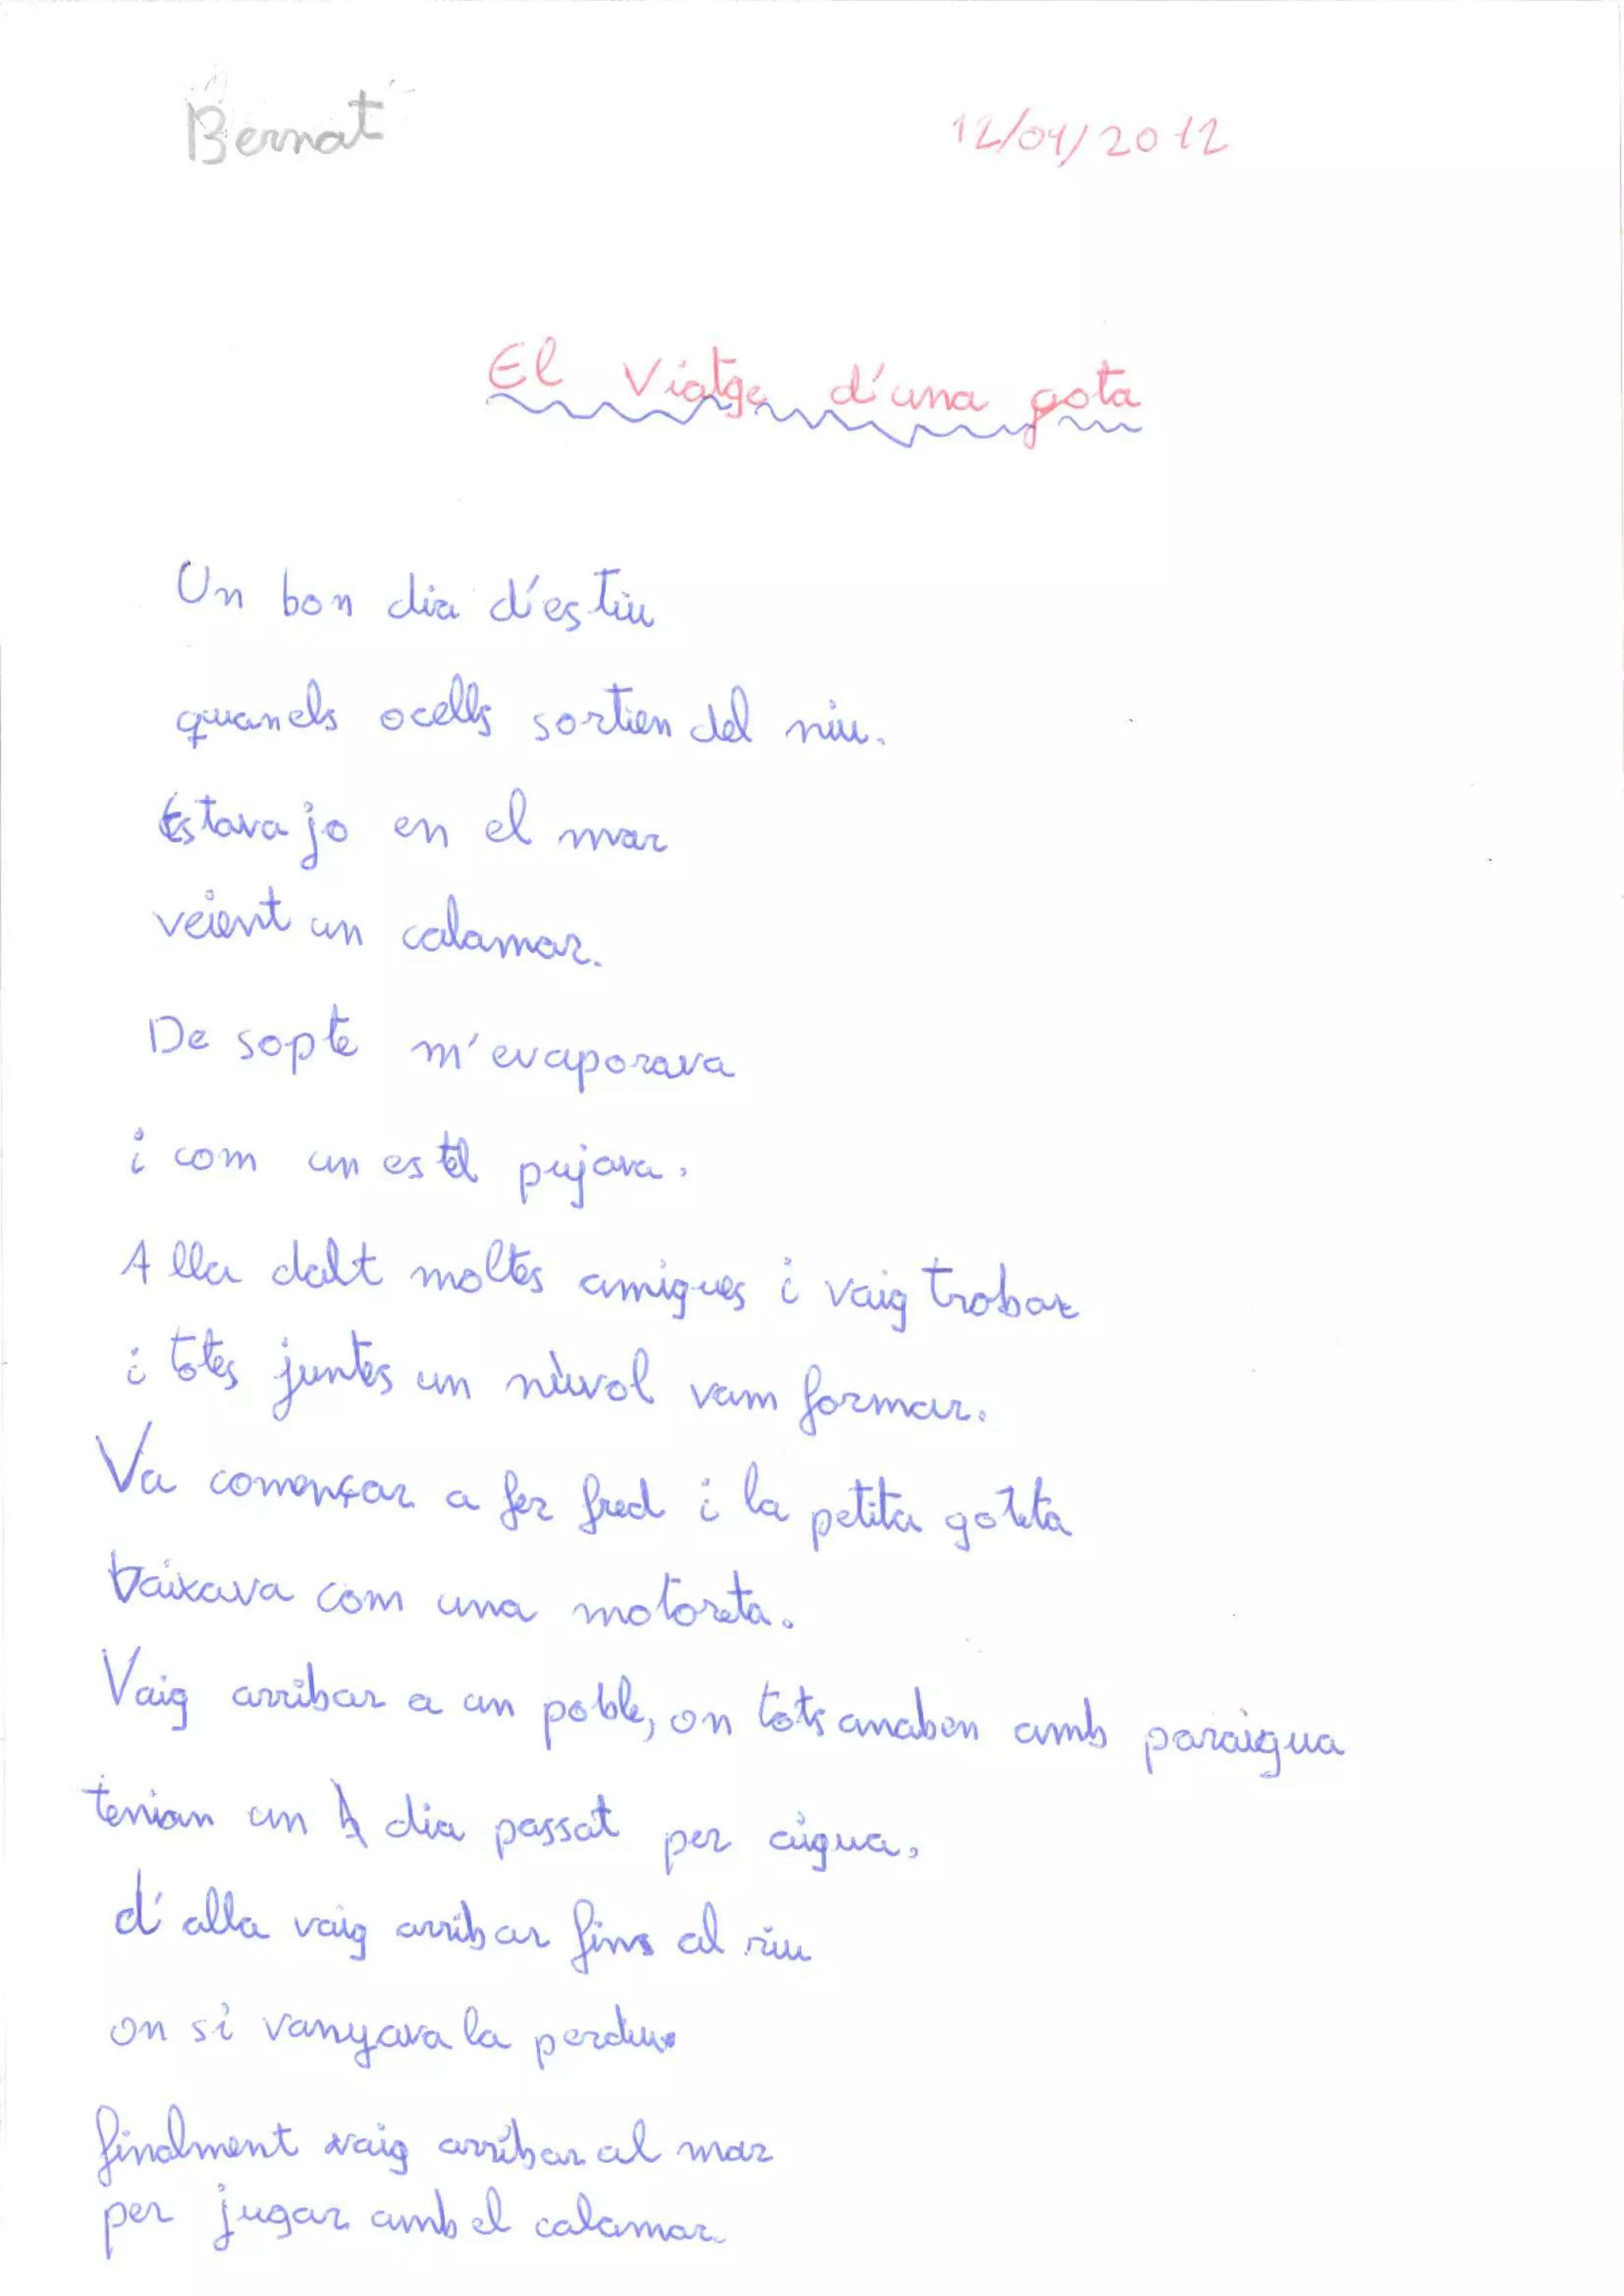 Bernat
12/04/2012
El Viatge d'una gota
Un bon dia d'estiu
quan els ocells sortien del niu.
Estava jo en el mar
veient un calamar.
De sopte m'evaporava
i com un estel pujava.
Alla dalt moltes amigues i vaig trobar
i totes juntes un núvol vam formar.
Va començar a fer fred i la petita goteta
baixava com una motoreta.
Vaig arribar a un poble, on tots anaben amb paraigua
tenian un dia passat per aigua,
d'alla vaig arribar fins al riu
on si vanyava la perdiu
finalment vaig arribar al mar
per jugar amb el calamar.